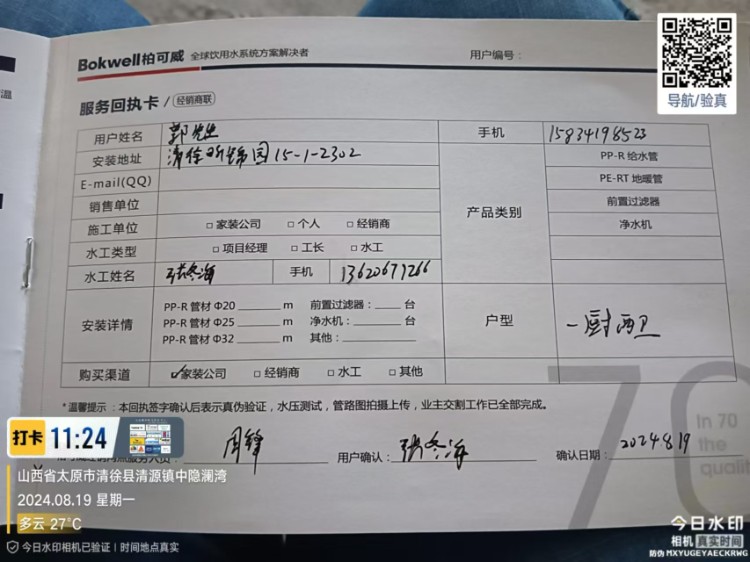 Bokwell柏可威 全球饮用水系统方案解决者 用户编号：
导航/验真
服务回执卡 / 经销商联
用户姓名 郭先生 手机 15834198523
安装地址 清徐 园15-1-2302 产品类别 PP-R 给水管
E-mail(QQ) PE-RT 地暖管
销售单位 前置过滤器
施工单位 □ 家装公司 □ 个人 □ 经销商 净水机
水工类型 □ 项目经理 □ 工长 □ 水工
水工姓名 张冬海 手机 13620671266
安装详情 PP-R 管材 Φ20 ____ m 前置过滤器：____ 台 户型 一厨两卫
PP-R 管材 Φ25 ____ m 净水机：____ 台
PP-R 管材 Φ32 ____ m 其他：____
购买渠道 ☑家装公司 □ 经销商 □ 水工 □ 其他
*温馨提示：本回执签字确认后表示真伪验证，水压测试，管路图拍摄上传，业主交割工作已全部完成。
70
In 70
the
qualit
打卡 11:24
周锋 用户确认：张冬海 确认日期：2024.8.19
山西省太原市清徐县清源镇中隐澜湾
2024.08.19 星期一
多云 27°C
今日水印相机已验证 | 时间地点真实
今日水印
相机 真实时间
防伪 MXYUGEYAECKRWG